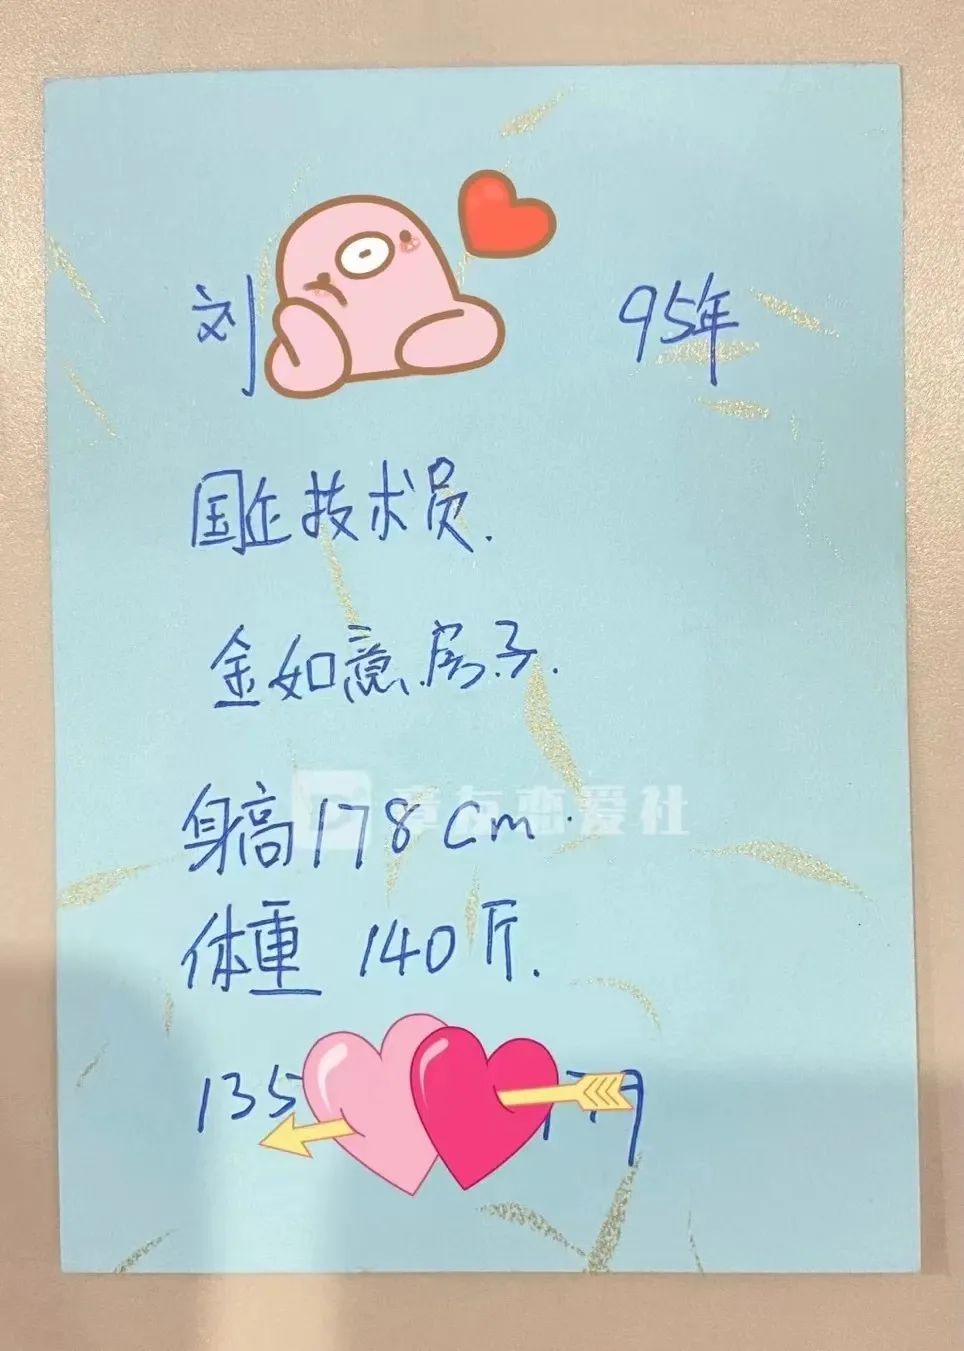 刘 95年
国企技术员.
金如意房子.
身高178cm.
章友恋爱社
体重 140斤.
135